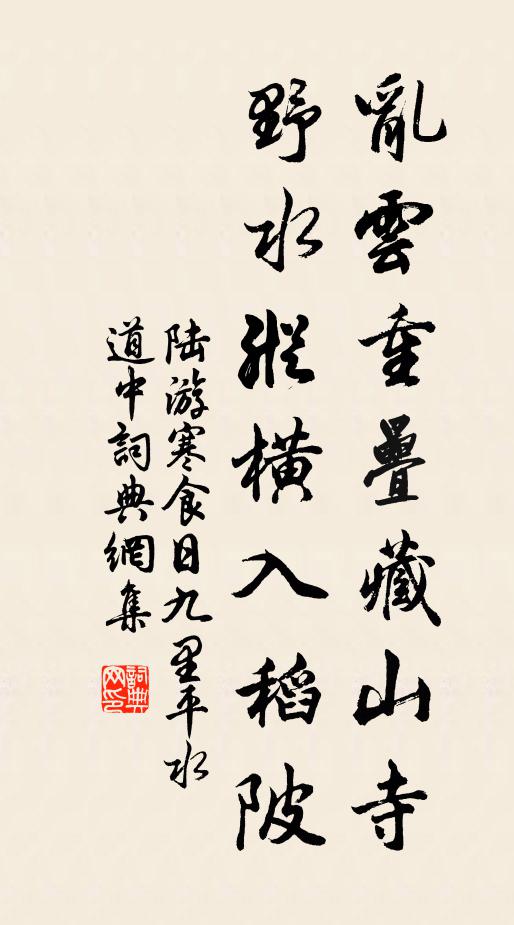 亂雲重疊藏山寺
野水縱橫入稻陂
陆游寒食日九里平水
道中詞典網集
詞典
网印